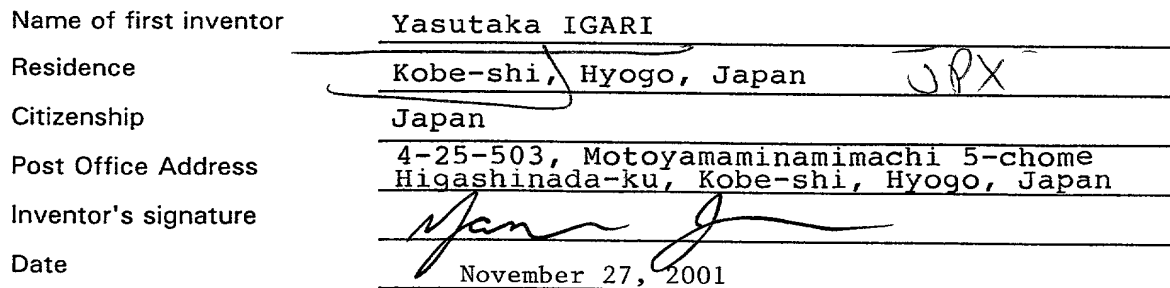 Name of first inventor Yasutaka IGARI
Residence Kobe-shi, Hyogo, Japan JPX
Citizenship Japan
Post Office Address 4-25-503, Motoyamaminamimachi 5-chome
Higashinada-ku, Kobe-shi, Hyogo, Japan
Inventor's signature
Date November 27, 2001